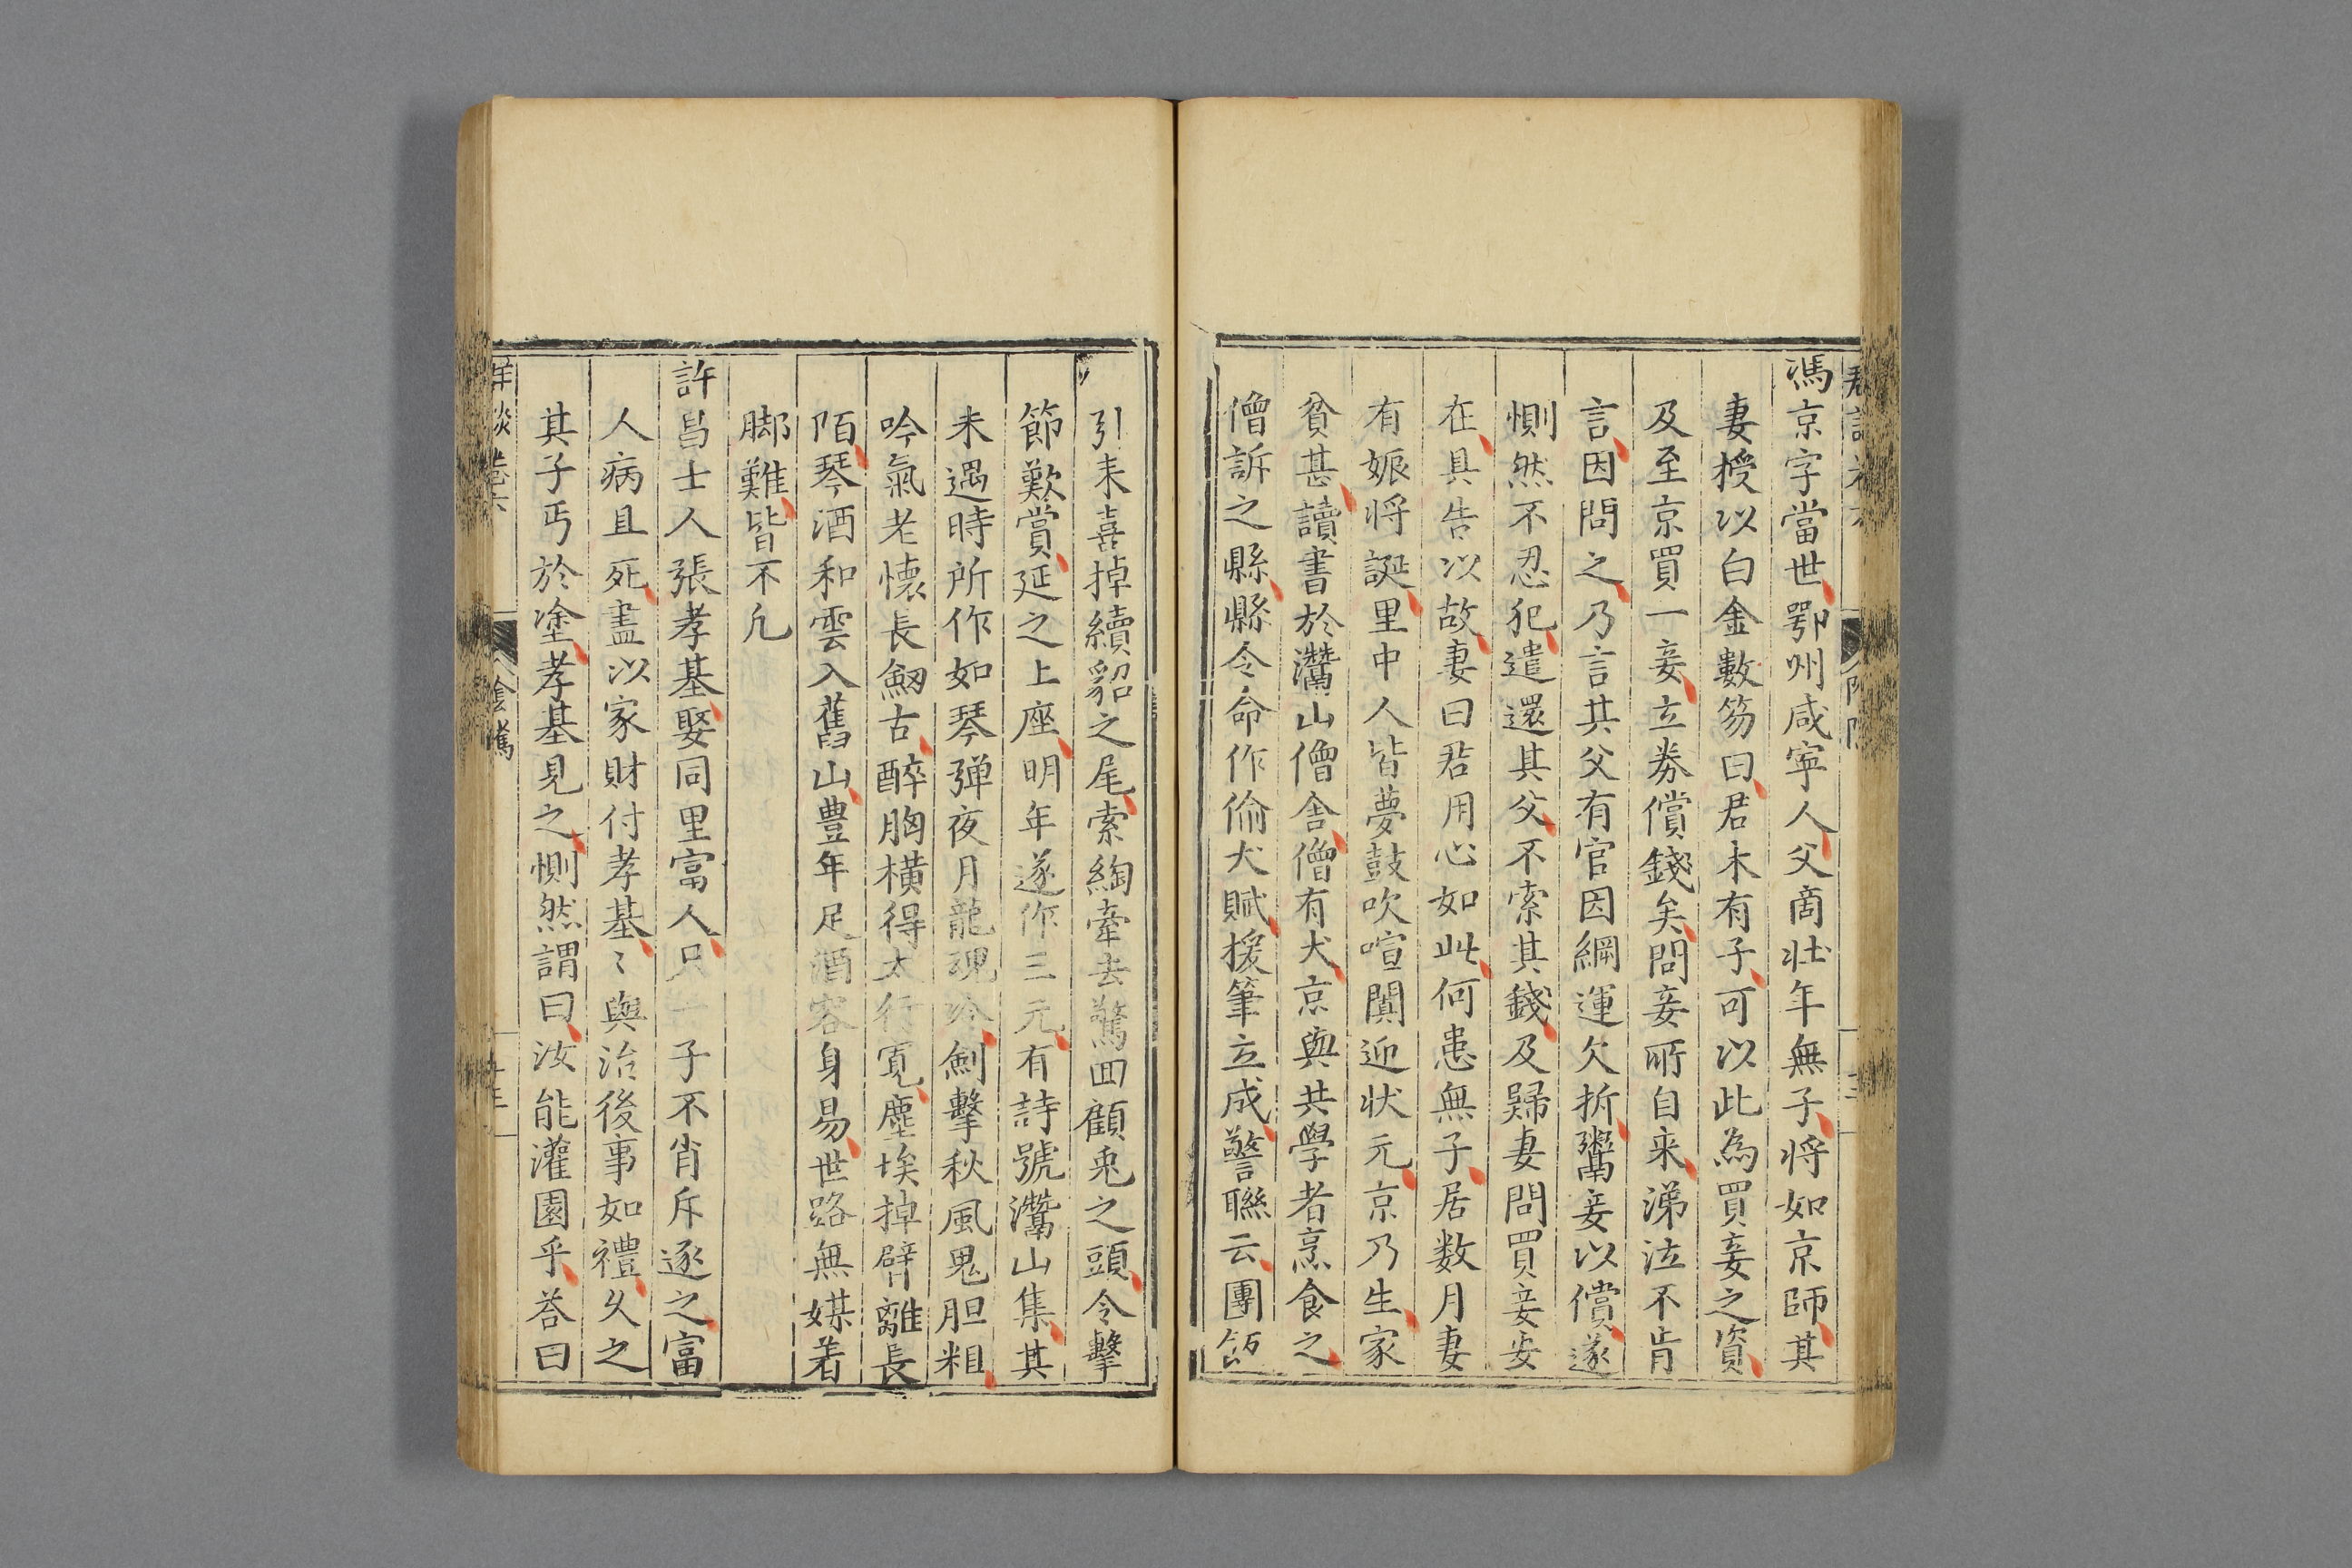 馮京字當世鄂州咸寜人父商壮年無子将如京師其
妻授以白金數笏曰君未有子可以此為買妾之資
及至京買一妾立券償錢矣問妾所自来涕泣不肯
言因問之乃言其父有官因綱運欠折鬻妾以償遂
惻然不忍犯遣還其父不索其錢及歸妻問買妾安
在具告以故妻曰君用心如此何患無子居数月妻
有娠将誕里中人皆夢鼓吹喧闐迎状元京乃生家
貧甚讀書於灊山僧舎僧有犬京與共學者烹食之
僧訴之縣縣令命作偷犬賦援筆立成警聯云團飯
引来喜掉續貂之尾索綯牽去驚回顧兎之頭令擊
節歎賞延之上座明年遂作三元有詩號灊山集其
未遇時所作如琴弹夜月龍魂冷劍擊秋風鬼胆粗
吟氣老懐長劔古醉胸横得太行寛塵埃掉臂離長
陌琴酒和雲入舊山豊年足酒容身易世路無媒着
脚難皆不凡
許昌士人張孝基娶同里富人只一子不肖斥逐之富
人病且死盡以家財付孝基〻與治後事如禮乆之
其子丐於塗孝基見之惻然謂曰汝能灌園乎荅曰
談卷六
陰騭